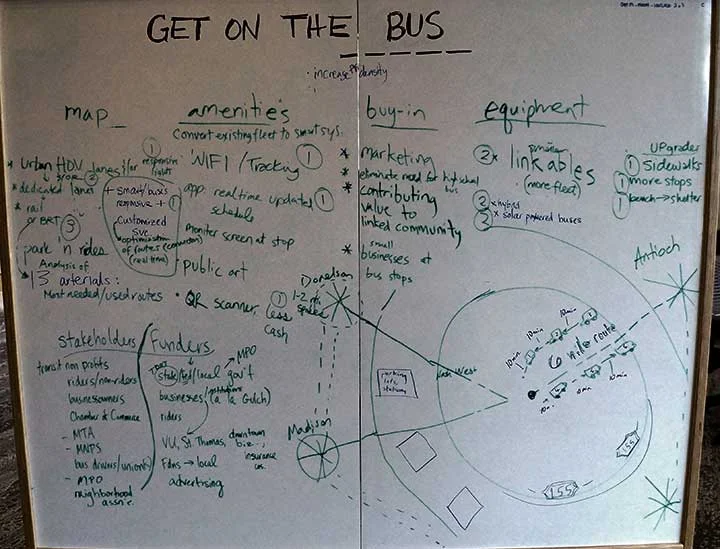 GET ON THE BUS
increase density
map
urban HOV lanes
dedicated lanes
rail
or BRT
3
park n rides
Analysis of
13 arterials:
Most needed/used routes
1
2
responsive
lights
+ smart/buses
responsive + 1
Customized
svc
optimization
of routes
(real time)
amenities
Convert existing fleet to smart sys.
WIFI / Tracking 1
app: real time updated 1
schedule
moniter screen at stop
public art
QR scanner, 1 less
cash
buy-in
marketing
eliminate need for high school
bus
contributing
value to
linked community
small
businesses at
bus stops
equipment
2 x linkables
(more fleet)
2 x hybrid
2 x solar powered buses
upgrades
1 sidewalks
1 more stops
1 bench → shelter
Stakeholders / Funders
transit non profits
riders/non-riders
businessowners
Chamber of Commerce
- MTA
- MNPS
bus drivers/union
- MPO
neighborhood
assn's.
MPO
state/fed/local gov't
businesses/institutions
(a la Gulch)
riders
VU, St. Thomas, downtown
biz...,
insurance
co.
Fdns → local
advertising
Donelson
Antioch
Madison
parking
lots
6 mile route
10min
10min
10min
10min
10min
10min
10min
155
155